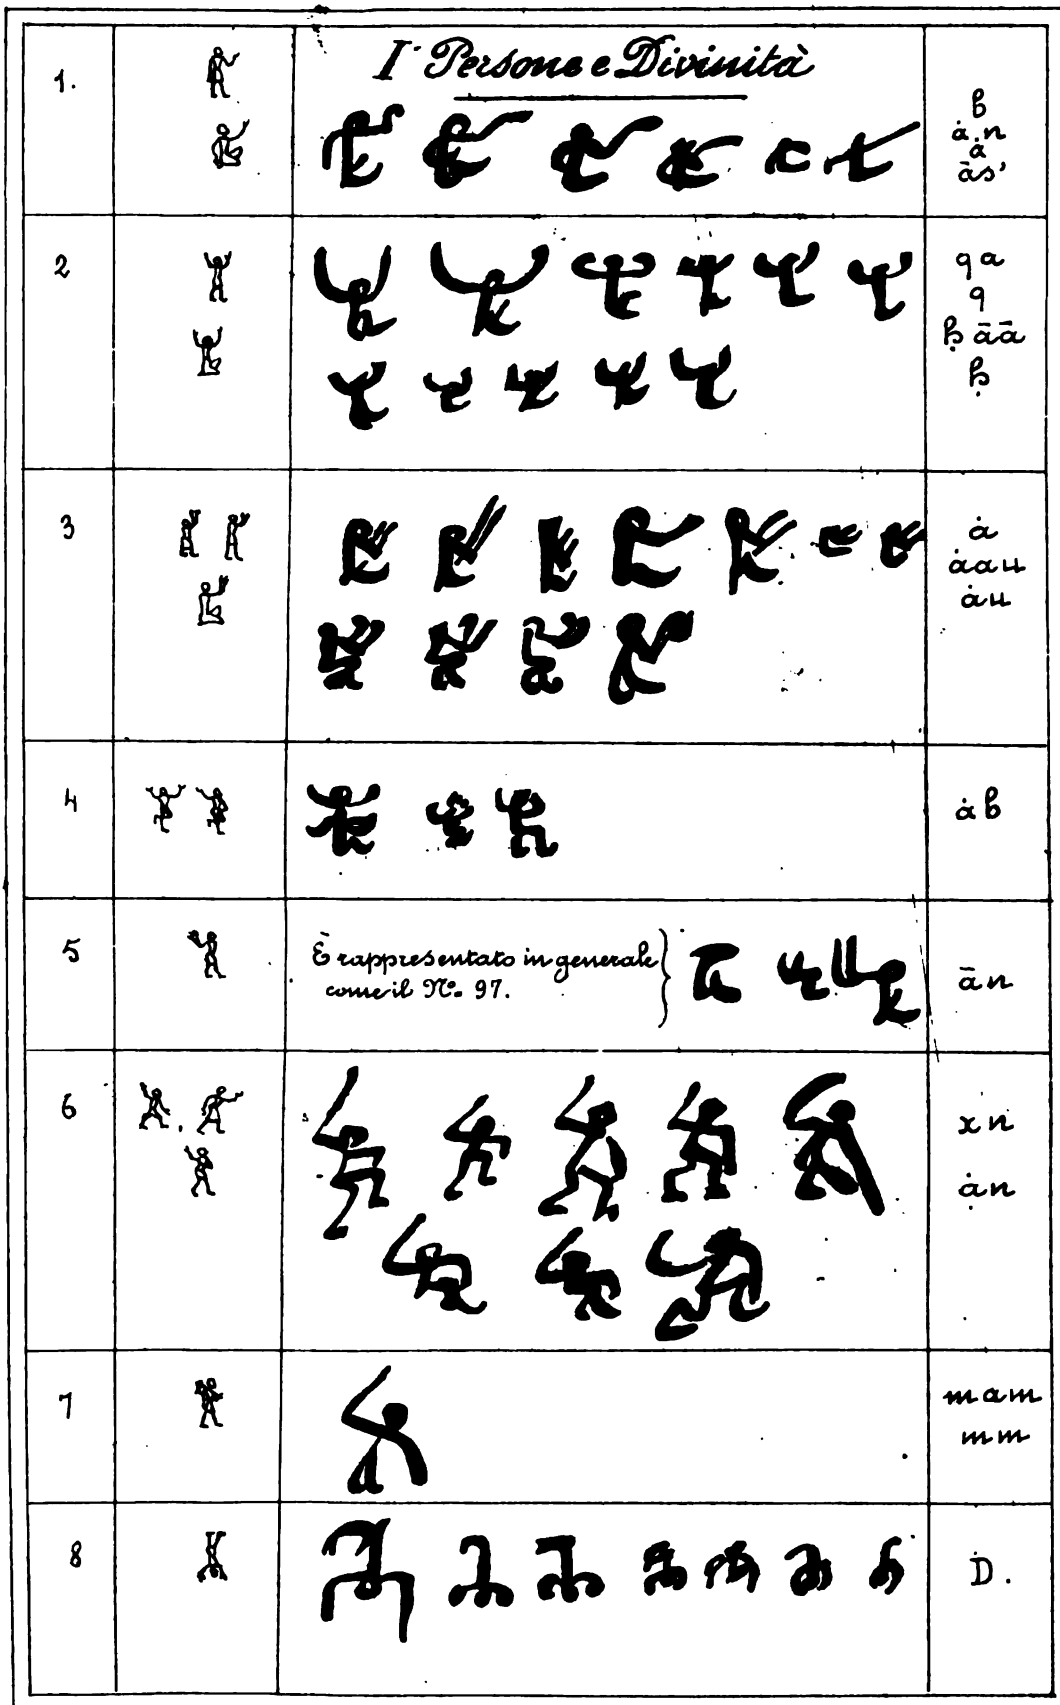 I° Persone e Divinità
1.
b
ȧ.n
ȧ
ās'
2
qa
q
ḥāā
ḥ
3
ȧ
ȧau
ȧu
4
ȧb
5
È rappresentato in generale
come il N.º 97.
ān
6
xn
7
mam
mm
8